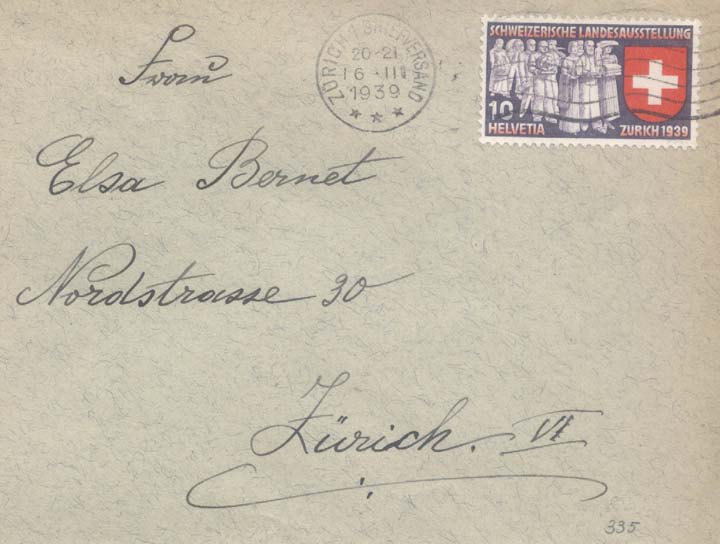 ZÜRICH 1 BRIEFVERSAND
20-21
16 III
1939
SCHWEIZERISCHE LANDESAUSSTELLUNG
10
HELVETIA
ZURICH 1939
Frau
Elsa Bernet
Nordstrasse 30
Zürich. VI
335